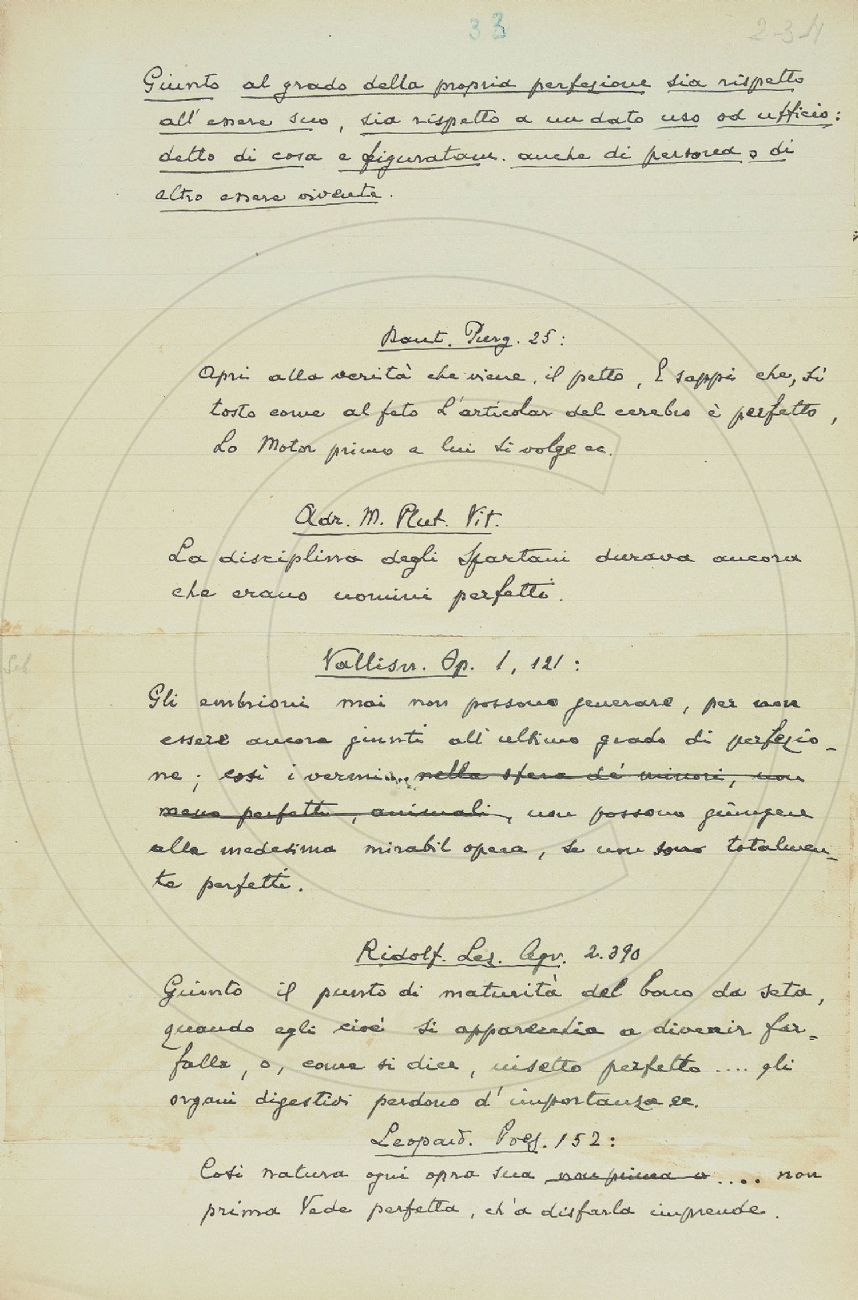 33
2-3-4
Giunto al grado della propria perfezione sia rispetto
all'essere suo, sia rispetto a un dato uso od ufficio:
detto di cosa e figuratam. anche di persona o di
altro essere vivente.
Dant. Purg. 25:
Apri alla verità che viene il petto, E sappi che, sì
tosto come al feto L'articolar del cerebro è perfetto,
Lo Motor primo a lui si volge ec.
Adr. M. Plut. Vit.
La disciplina degli Spartani durava ancora
che erano uomini perfetti.
Vallisn. Op. 1, 121:
Gli embrioni mai non possono generare, per non
essere ancora giunti all'ultimo grado di perfezio-
ne; così i vermi... nella sfera de' minori, non
meno perfetti, animali, non possono giungere
alla medesima mirabil opera, se non sono totalmen-
te perfetti.
Ridolf. Lez. Agr. 2.390
Giunto il punto di maturità del baco da seta,
quando egli cioè si apparecchia a divenir far-
falla, o, come si dice, insetto perfetto .... gli
organi digestivi perdono d'importanza ec.
Leopard. Poes. 152:
Così natura ogni opra sua non prima o .... non
prima Vede perfetta, ch'a disfarla imprende.